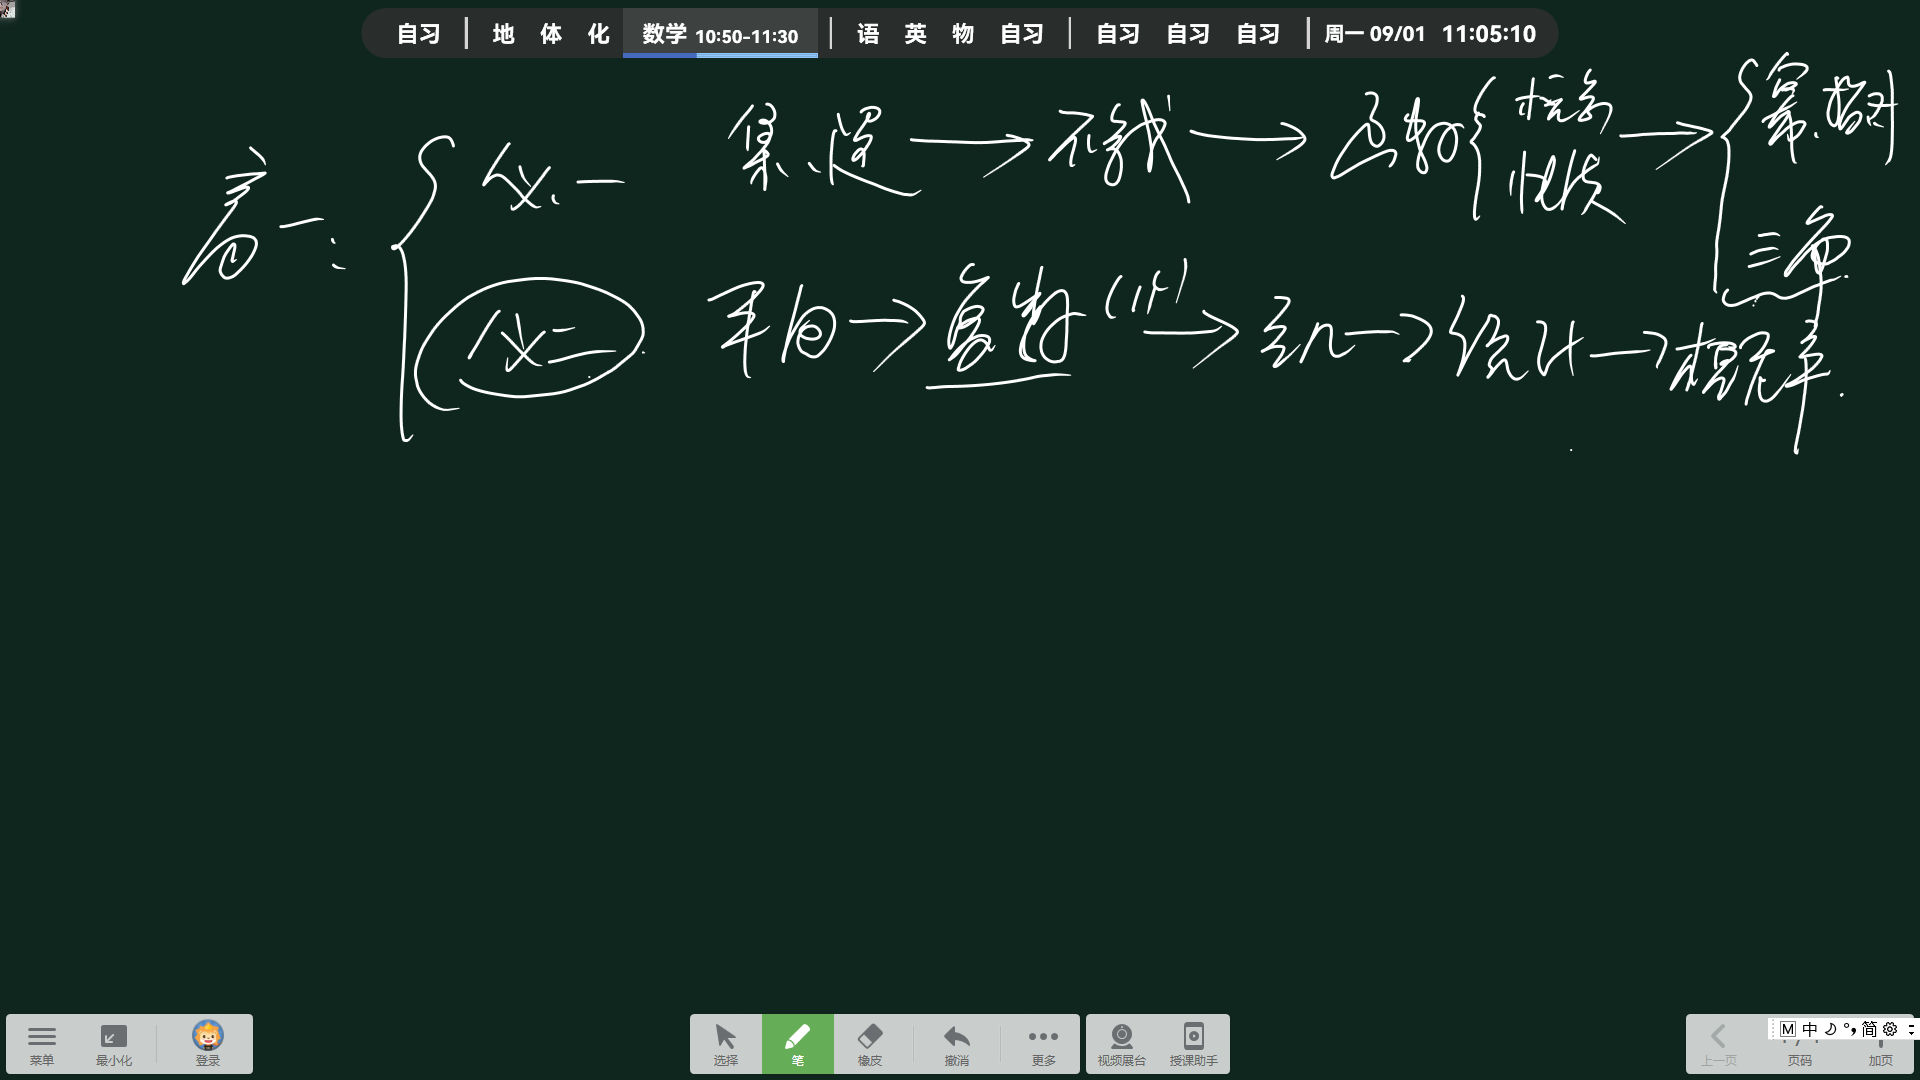 自习 | 地 体 化 数学 10:50-11:30 | 语 英 物 自习 | 自习 自习 自习 | 周一 09/01 11:05:10
高一:
必一 集、逻 → 不等式 → 函数 { 概念 性质 → { 幂.指对 三角.
必二 平向 → 复数 → 立几 → 统计 → 概率.
菜单 最小化 登录 选择 笔 橡皮 撤消 更多 视频展台 授课助手 上一页 页码 加页
M 中 简